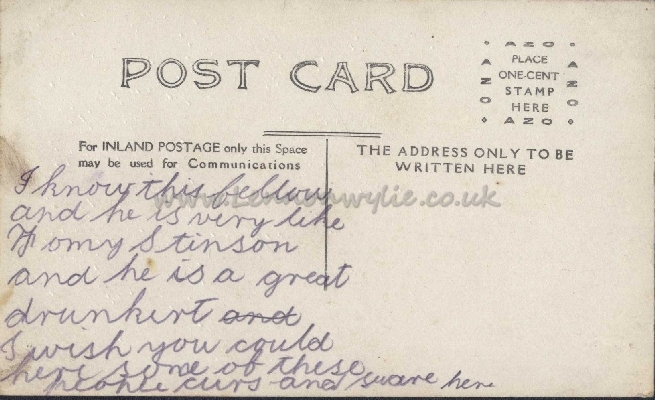 POST CARD
AZO
AZO
PLACE
ONE-CENT
STAMP
HERE
AZO
AZO
For INLAND POSTAGE only this Space
may be used for Communications
THE ADDRESS ONLY TO BE
WRITTEN HERE
I know this fellow
and he is very like
Tomy Stinson
and he is a great
drunkert and
I wish you could
here some of these
people curs and sware here